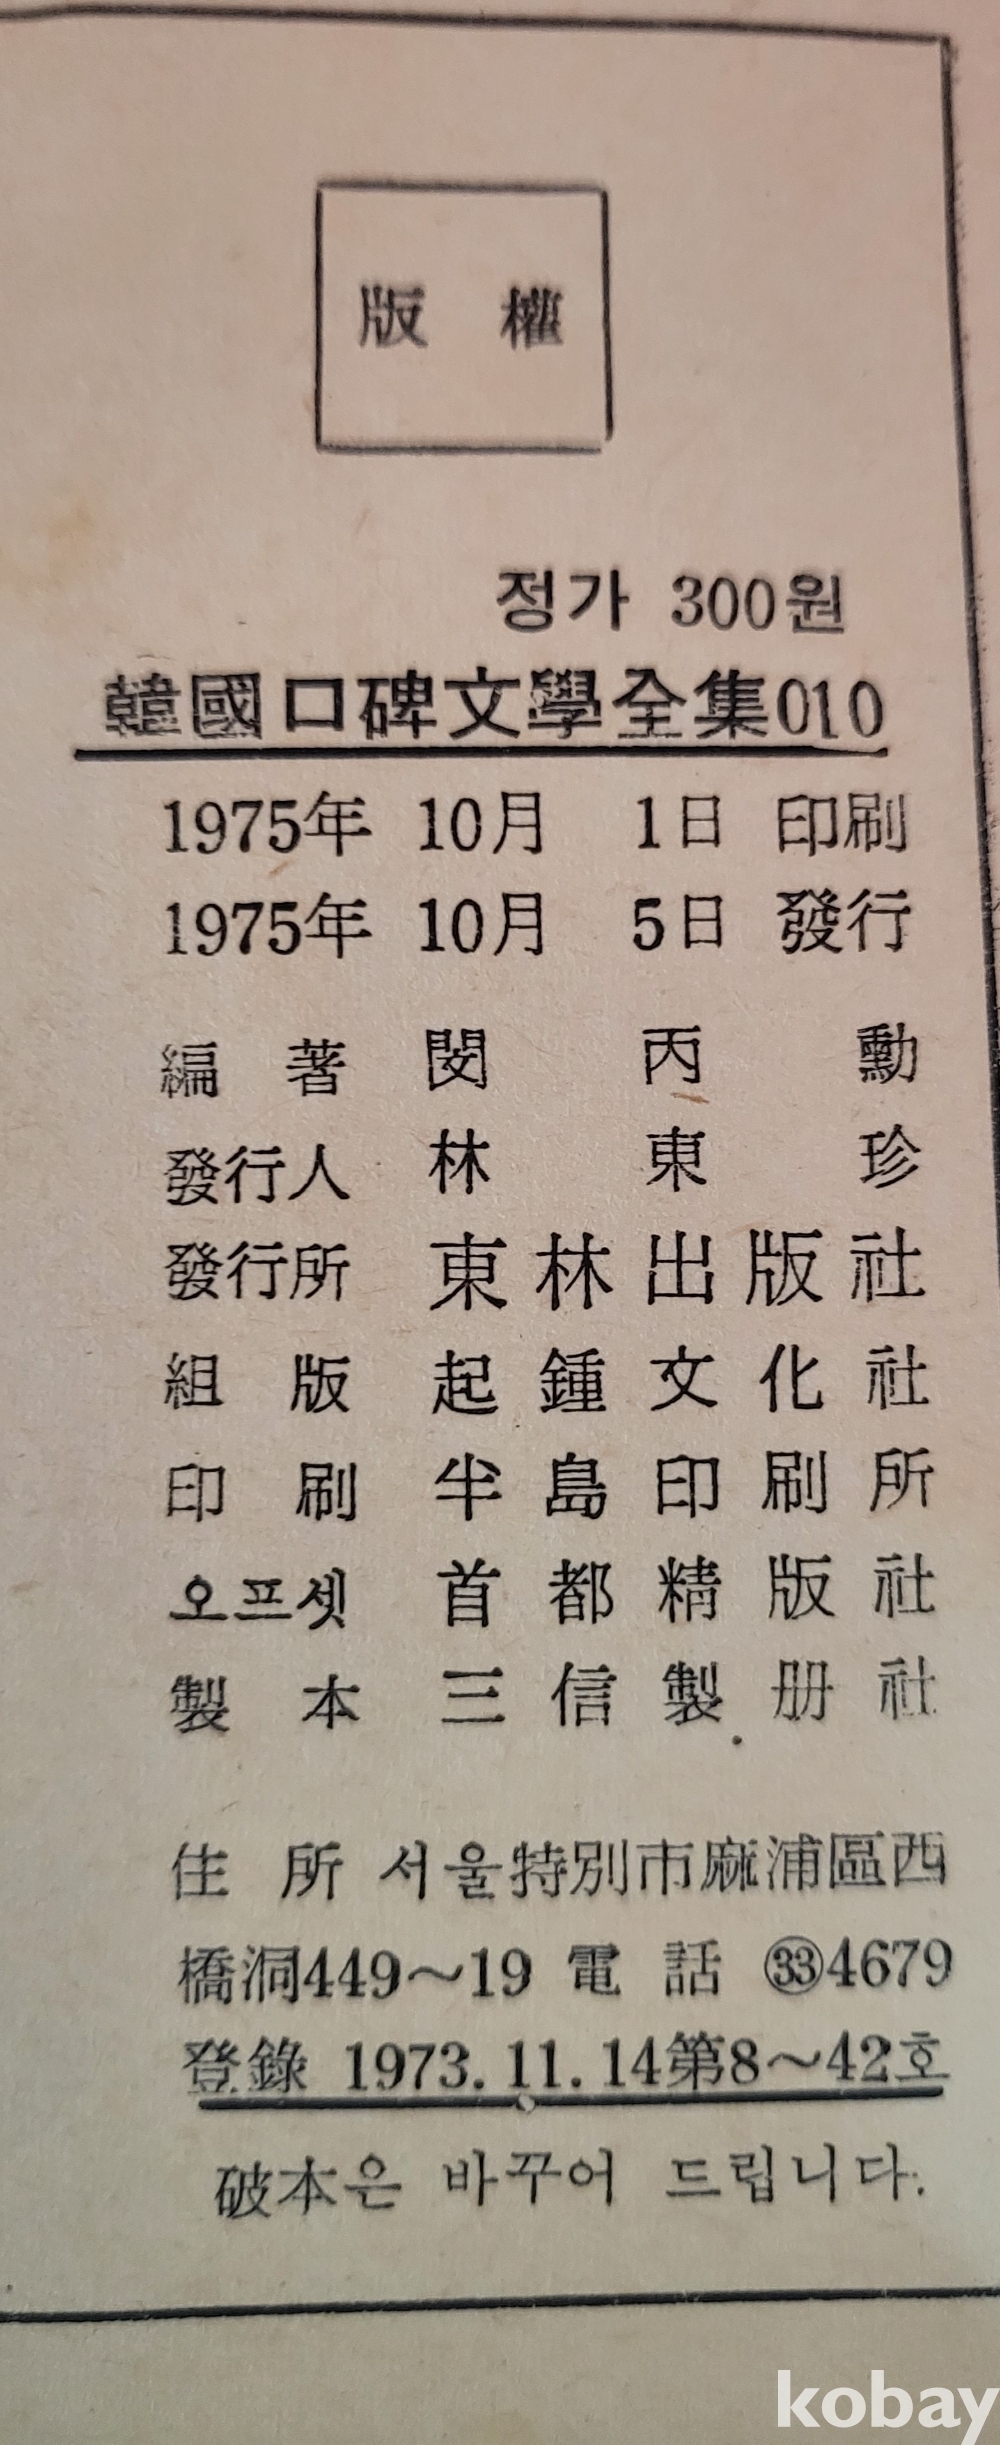 版 權
정가 300원
韓國口碑文學全集010
1975年 10月 1日 印刷
1975年 10月 5日 發行
編 著 閔 丙 勳
發行人 林 東 珍
發行所 東林出版社
組 版 起鍾文化社
印 刷 半島印刷所
오프셋 首都精版社
製 本 三信製册社
住 所 서울特別市麻浦區西
橋洞449～19 電 話 ㉝4679
登錄 1973.11.14第8～42호
破本은 바꾸어 드립니다.
kobay